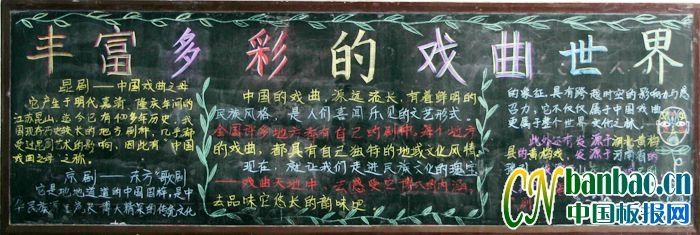 丰富多彩的戏曲世界
昆剧——中国戏曲之母
它产生于明代嘉靖、隆庆年间的
江苏昆山,迄今已有400多年历史,我
国现存历史较长的地方剧种,几乎都
受过昆剧艺术的影响,因此有"中国
戏曲之母"之称。
京剧——东方"歌剧"
它是地地道道的中国国粹,是中
华民族源远流长、博大精深的传统文化
中国的戏曲,源远流长,有着鲜明的
民族风格,是人们喜闻乐见的文艺形式。
全国许多地方都有自己的剧种,每个地方
的戏曲,都具有自己独特的地域文化风情。
现在,就让我们走进民族文化的瑰宝
——戏曲天地中,去感受它博大的内涵,
去品味它悠长的韵味吧
的象征,具有跨越时空的影响力与感
召力,它不仅仅属于中国戏曲,
更属于整个世界文化之林。
此外还有发源于湖北黄梅
县的黄梅戏,发源于河南省的
CNbanbao.cn
中国板报网